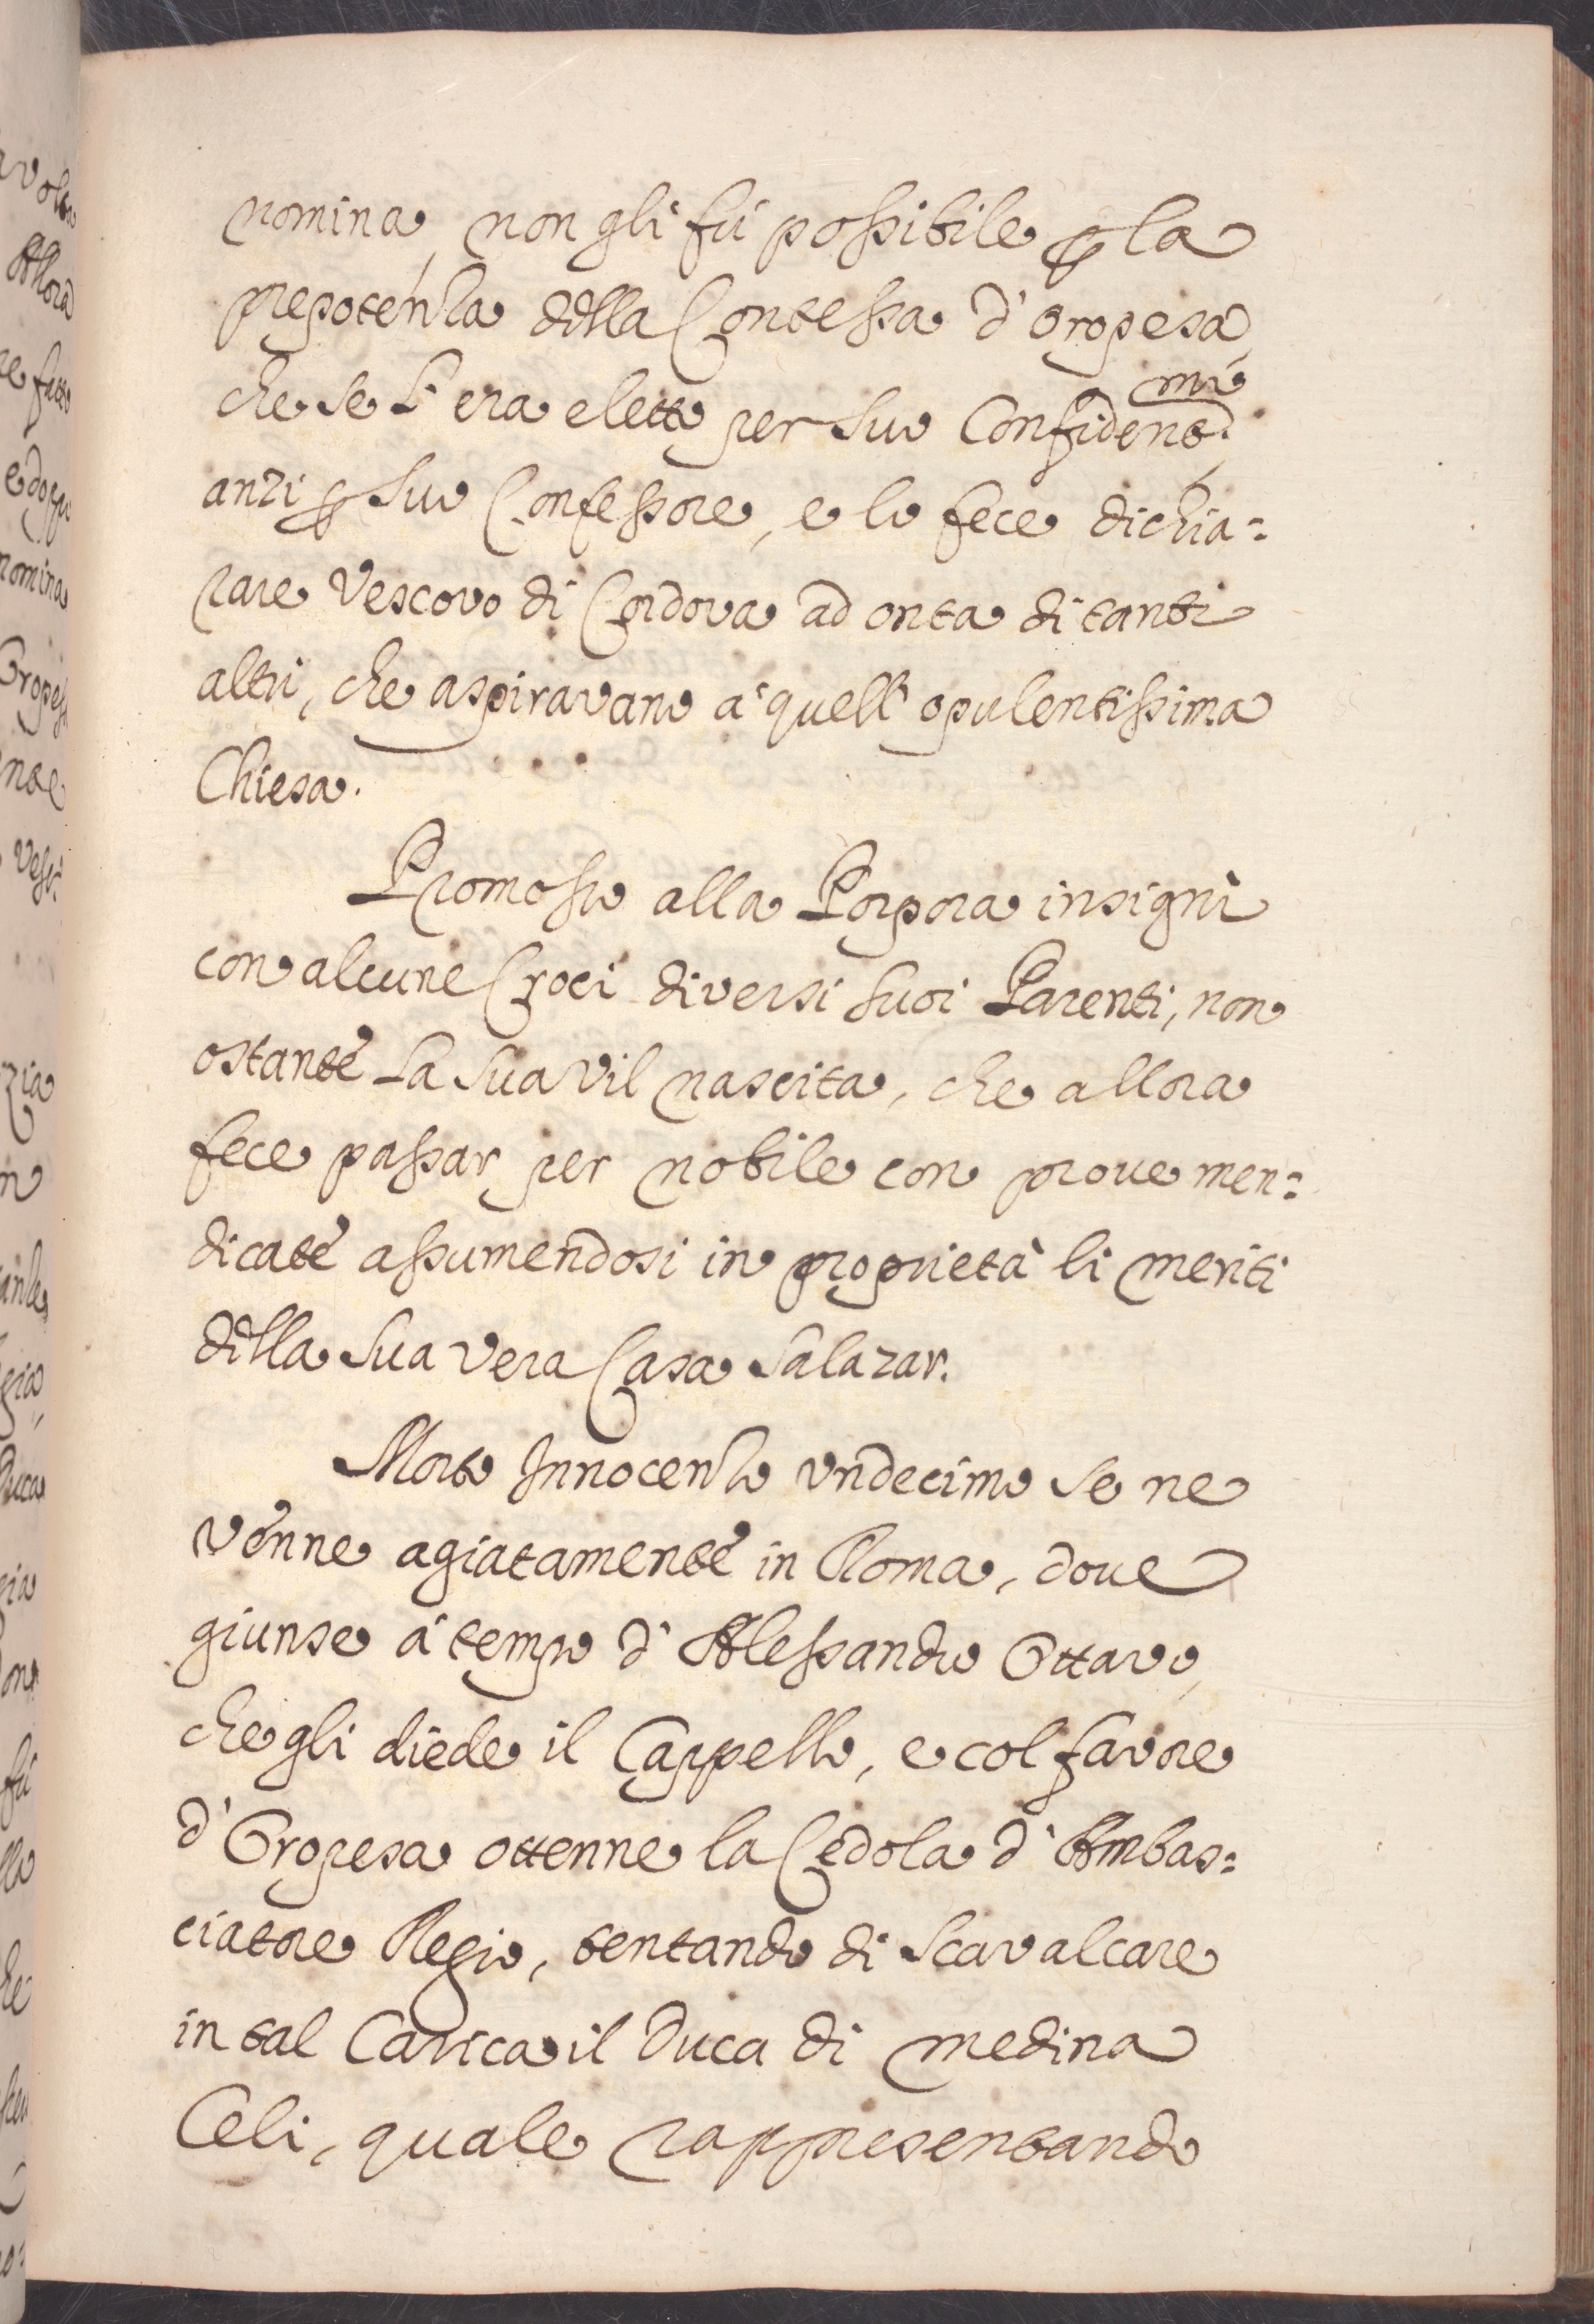 nomina, non gli fú possibile ꝑ la
prepotenza della Contessa d'Oropesa,
che se l'era eletto per suo Confidentmo.
anzi ꝑ suo Confessore, e lo fece dichia=
rare Vescovo di Cordova ad onta di tanti
altri, che aspiravano a' quell'opulentissima
Chiesa.
Promosso alla Porpora insignì
con alcune Croci diversi suoi Parenti, non
ostante la sua vil nascita, che allora
fece passar per nobile con proue men=
dicate assumendosi in proprietà li meriti
della sua vera Casa Salazar.
Morto Innocenzo Vndecimo se ne
venne agiatamente in Roma, doue
giunse a' tempo d'Alessandro Ottavo,
che gli diede il Cappello, e col favore
d'Oropesa ottenne la Cedola d'Ambas=
ciatore Regio, tentando di scavalcare
in tal Carica il Duca di Medina
Celi, quale rappresentando